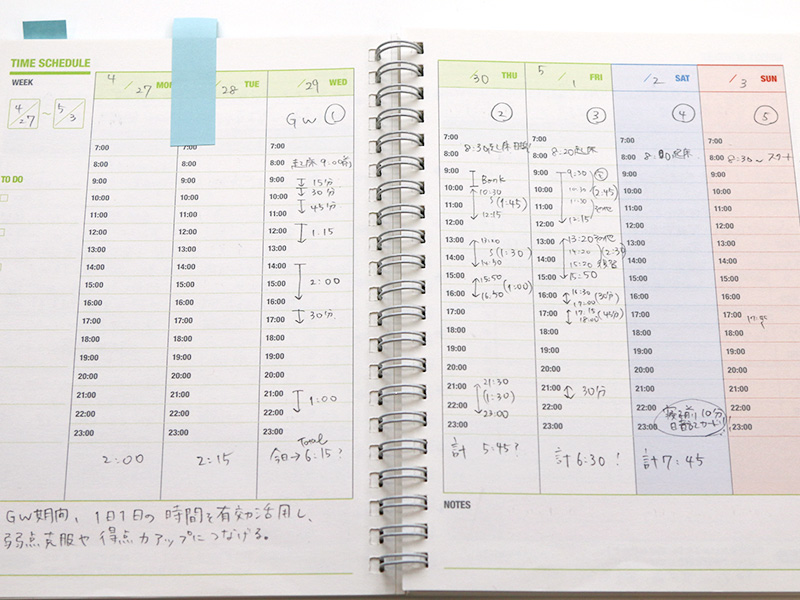 TIME SCHEDULE
WEEK
4/27 ~ 5/3
TO DO
4/27 MON
/28 TUE
/29 WED
GW ①
7:00
8:00 起床 9:00前
9:00 15分
10:00 30分
11:00 45分
12:00 1:15
13:00
14:00
15:00 2:00
16:00
17:00 30分
18:00
19:00
20:00
21:00 1:00
22:00
23:00
Total
2:00
2:15
今日→6:15?
GW期間、1日1日の時間を有効活用し、
弱点克服や得点力アップにつなげる。
/30 THU
②
7:00
8:00 8:30起床
9:00 Bank
10:00 10:30
11:00 (1:45)
12:00 12:15
13:00 13:00
14:00 (1:30)
14:30
15:00 15:50
16:00 (1:00)
16:50
17:00
18:00
19:00
20:00
21:00 21:30
22:00 (1:30)
23:00 23:00
計 5:45?
5/1 FRI
③
7:00
8:00 8:20起床
9:00 9:30
10:00 10:30 (2:45)
11:00 11:30
12:00 12:15
13:00 13:20
14:00 14:20
15:00 15:20
15:50
16:00 16:30 (30分)
17:00
17:00 17:15 (45分)
18:00
18:00
19:00
20:00
21:00 30分
22:00
23:00
計 6:30!
/2 SAT
④
7:00
8:00 起床
9:00
10:00
11:00
12:00
13:00
14:00
15:00
16:00
17:00
18:00
19:00
20:00
21:00
22:00 10分
23:00
計 7:45
/3 SUN
⑤
7:00
8:00 8:30~スタート
9:00
10:00
11:00
12:00
13:00
14:00
15:00
16:00
17:00
18:00
19:00
20:00
21:00
22:00
23:00
NOTES